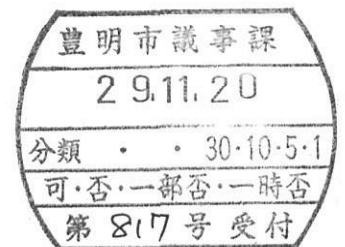 豊明市議事課
29.11.20
分類 ・ ・ 30・10・5・1
可・否・一部否・一時否
第 817 号 受付